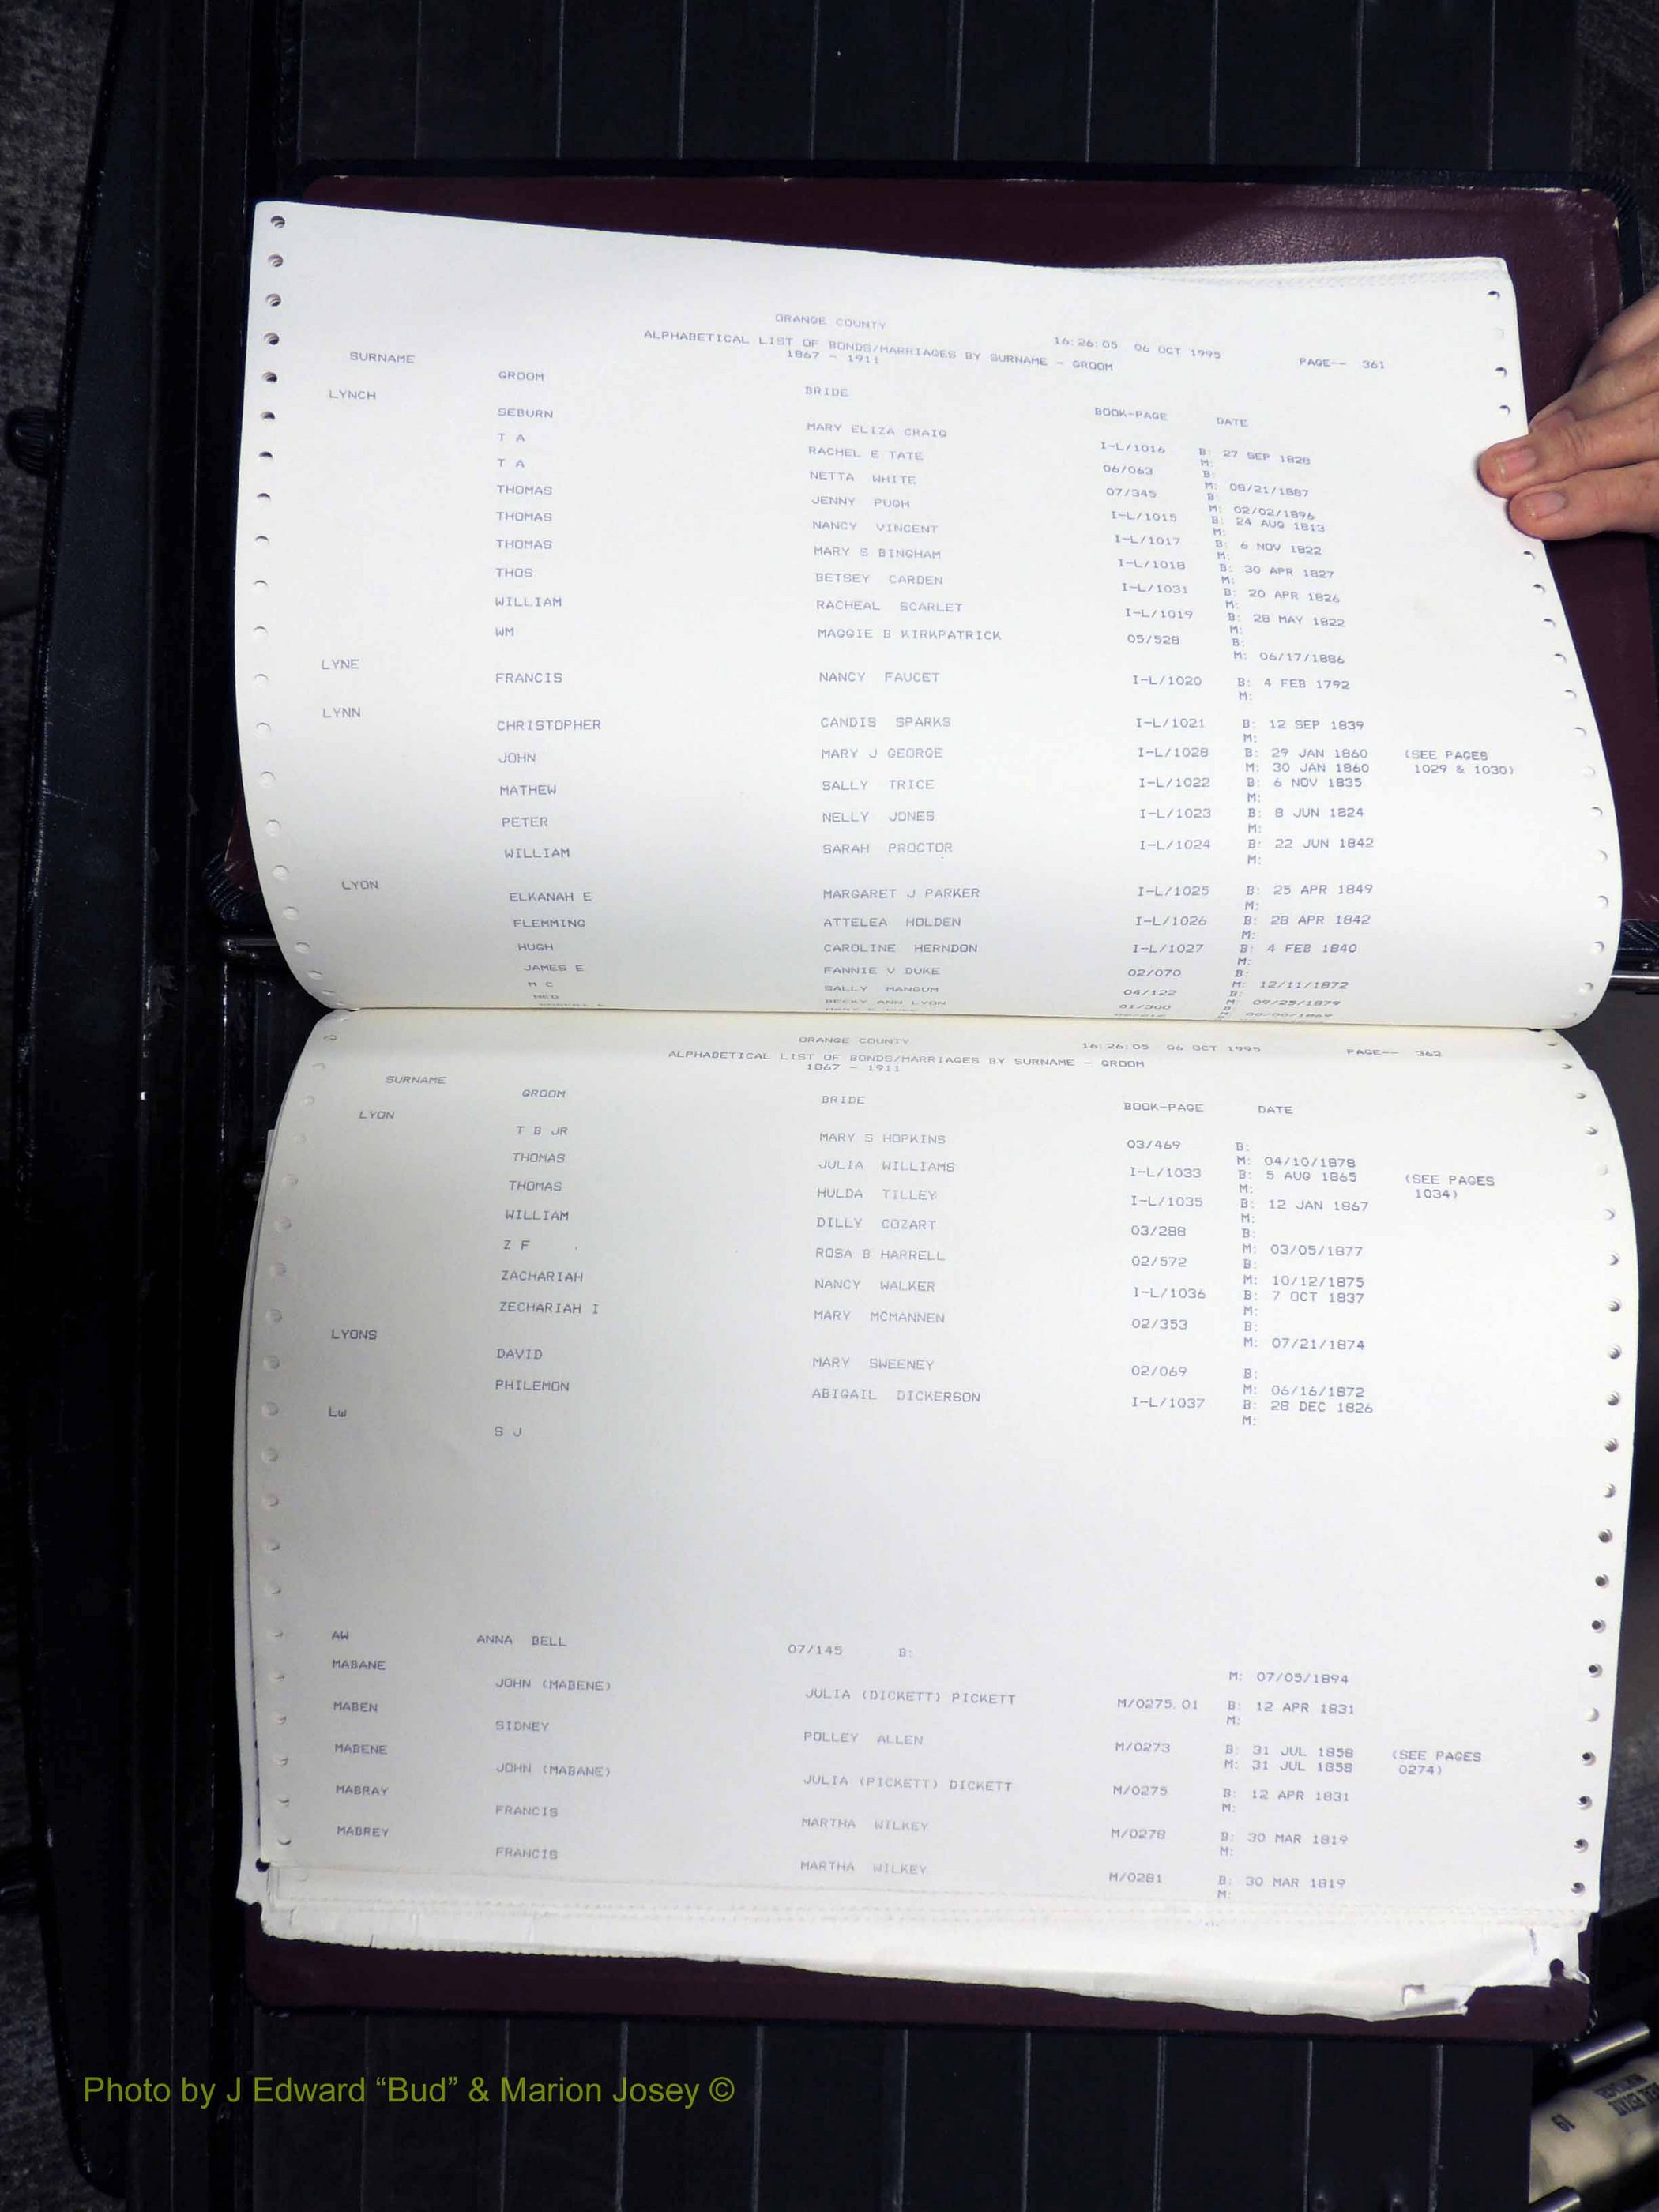 ORANGE COUNTY 16:26:05 06 OCT 1995 PAGE-- 361
ALPHABETICAL LIST OF BONDS/MARRIAGES BY SURNAME - GROOM
1867 - 1911
SURNAME GROOM BRIDE BOOK-PAGE DATE
LYNCH
SEBURN MARY ELIZA CRAIG I-L/1016 B: 27 SEP 1828
M:
T A RACHEL E TATE 06/063 B:
M: 08/21/1887
T A NETTA WHITE 07/345 B:
M: 02/02/1896
THOMAS JENNY PUGH I-L/1015 B: 24 AUG 1813
M:
THOMAS NANCY VINCENT I-L/1017 B: 6 NOV 1822
M:
THOMAS MARY S BINGHAM I-L/1018 B: 30 APR 1827
M:
THOS BETSEY CARDEN I-L/1031 B: 20 APR 1826
M:
WILLIAM RACHEAL SCARLET I-L/1019 B: 28 MAY 1822
M:
WM MAGGIE B KIRKPATRICK 05/528 B:
M: 06/17/1886
LYNE
FRANCIS NANCY FAUCET I-L/1020 B: 4 FEB 1792
M:
LYNN
CHRISTOPHER CANDIS SPARKS I-L/1021 B: 12 SEP 1839
M:
JOHN MARY J GEORGE I-L/1028 B: 29 JAN 1860 (SEE PAGES
M: 30 JAN 1860 1029 & 1030)
MATHEW SALLY TRICE I-L/1022 B: 6 NOV 1835
M:
PETER NELLY JONES I-L/1023 B: 8 JUN 1824
M:
WILLIAM SARAH PROCTOR I-L/1024 B: 22 JUN 1842
M:
LYON
ELKANAH E MARGARET J PARKER I-L/1025 B: 25 APR 1849
M:
FLEMMING ATTELEA HOLDEN I-L/1026 B: 28 APR 1842
M:
HUGH CAROLINE HERNDON I-L/1027 B: 4 FEB 1840
M:
JAMES E FANNIE V DUKE 02/070 B:
M: 12/11/1872
M C SALLY MANGUM 04/122 B:
M: 09/25/1879
NED BECKY ANN LYON 01/300 B:
ORANGE COUNTY 16:26:05 06 OCT 1995 PAGE-- 362
ALPHABETICAL LIST OF BONDS/MARRIAGES BY SURNAME - GROOM
1867 - 1911
SURNAME GROOM BRIDE BOOK-PAGE DATE
LYON
T B JR MARY S HOPKINS 03/469 B:
M: 04/10/1878
THOMAS JULIA WILLIAMS I-L/1033 B: 5 AUG 1865 (SEE PAGES
M: 1034)
THOMAS HULDA TILLEY I-L/1035 B: 12 JAN 1867
M:
WILLIAM DILLY COZART 03/288 B:
M: 03/05/1877
Z F ROSA B HARRELL 02/572 B:
M: 10/12/1875
ZACHARIAH NANCY WALKER I-L/1036 B: 7 OCT 1837
M:
ZECHARIAH I MARY MCMANNEN 02/353 B:
M: 07/21/1874
LYONS
DAVID MARY SWEENEY 02/069 B:
M: 06/16/1872
PHILEMON ABIGAIL DICKERSON I-L/1037 B: 28 DEC 1826
M:
Lw
S J
AW ANNA BELL 07/145 B:
M: 07/05/1894
MABANE
JOHN (MABENE) JULIA (DICKETT) PICKETT M/0275.01 B: 12 APR 1831
M:
MABEN
SIDNEY POLLEY ALLEN M/0273 B: 31 JUL 1858 (SEE PAGES
M: 31 JUL 1858 0274)
MABENE
JOHN (MABANE) JULIA (PICKETT) DICKETT M/0275 B: 12 APR 1831
M:
MABRAY
FRANCIS MARTHA WILKEY M/0278 B: 30 MAR 1819
M:
MABREY
FRANCIS MARTHA WILKEY M/0281 B: 30 MAR 1819
M:
Photo by J Edward “Bud” & Marion Josey ©